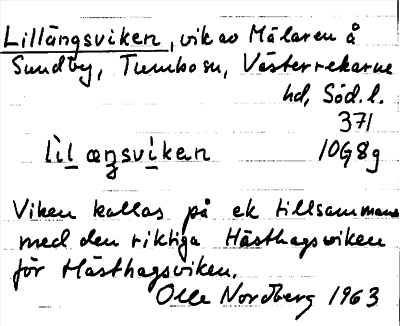 Lillängsviken, vik av Mälaren å
Sundby, Tumbo sn, Västerrekarne
hd, Söd. l.
371
lil æŋsvikan 10G8g
Viken kallas på ek tillsammans
med den riktiga Hästhagsviken
för Hästhagsviken.
Olle Nordberg 1963